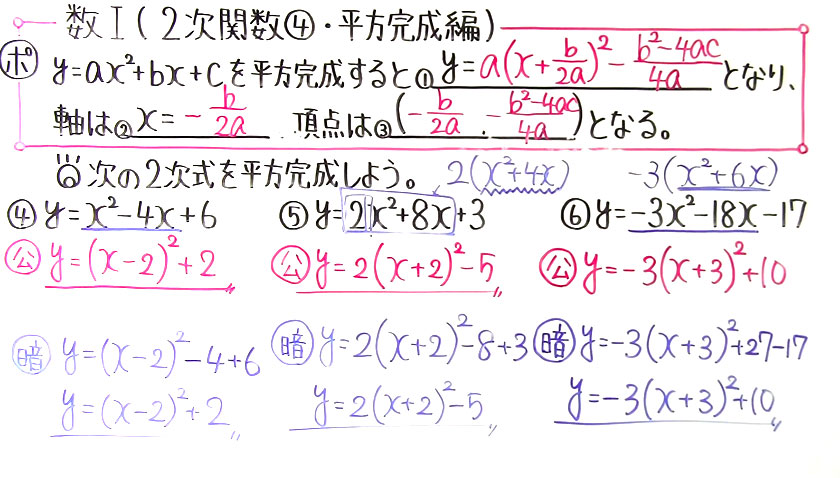 数I(2次関数④・平方完成編)
ポ y=ax²+bx+cを平方完成すると① y=a(x+b/2a)²-(b²-4ac)/4a となり、
軸は② x=-b/2a 頂点は③(-b/2a, -(b²-4ac)/4a)となる。
次の2次式を平方完成しよう。 2(x²+4x) -3(x²+6x)
④ y=x²-4x+6 ⑤ y=2x²+8x+3 ⑥ y=-3x²-18x-17
公 y=(x-2)²+2 公 y=2(x+2)²-5 公 y=-3(x+3)²+10
暗 y=(x-2)²-4+6 暗 y=2(x+2)²-8+3 暗 y=-3(x+3)²+27-17
y=(x-2)²+2 y=2(x+2)²-5 y=-3(x+3)²+10